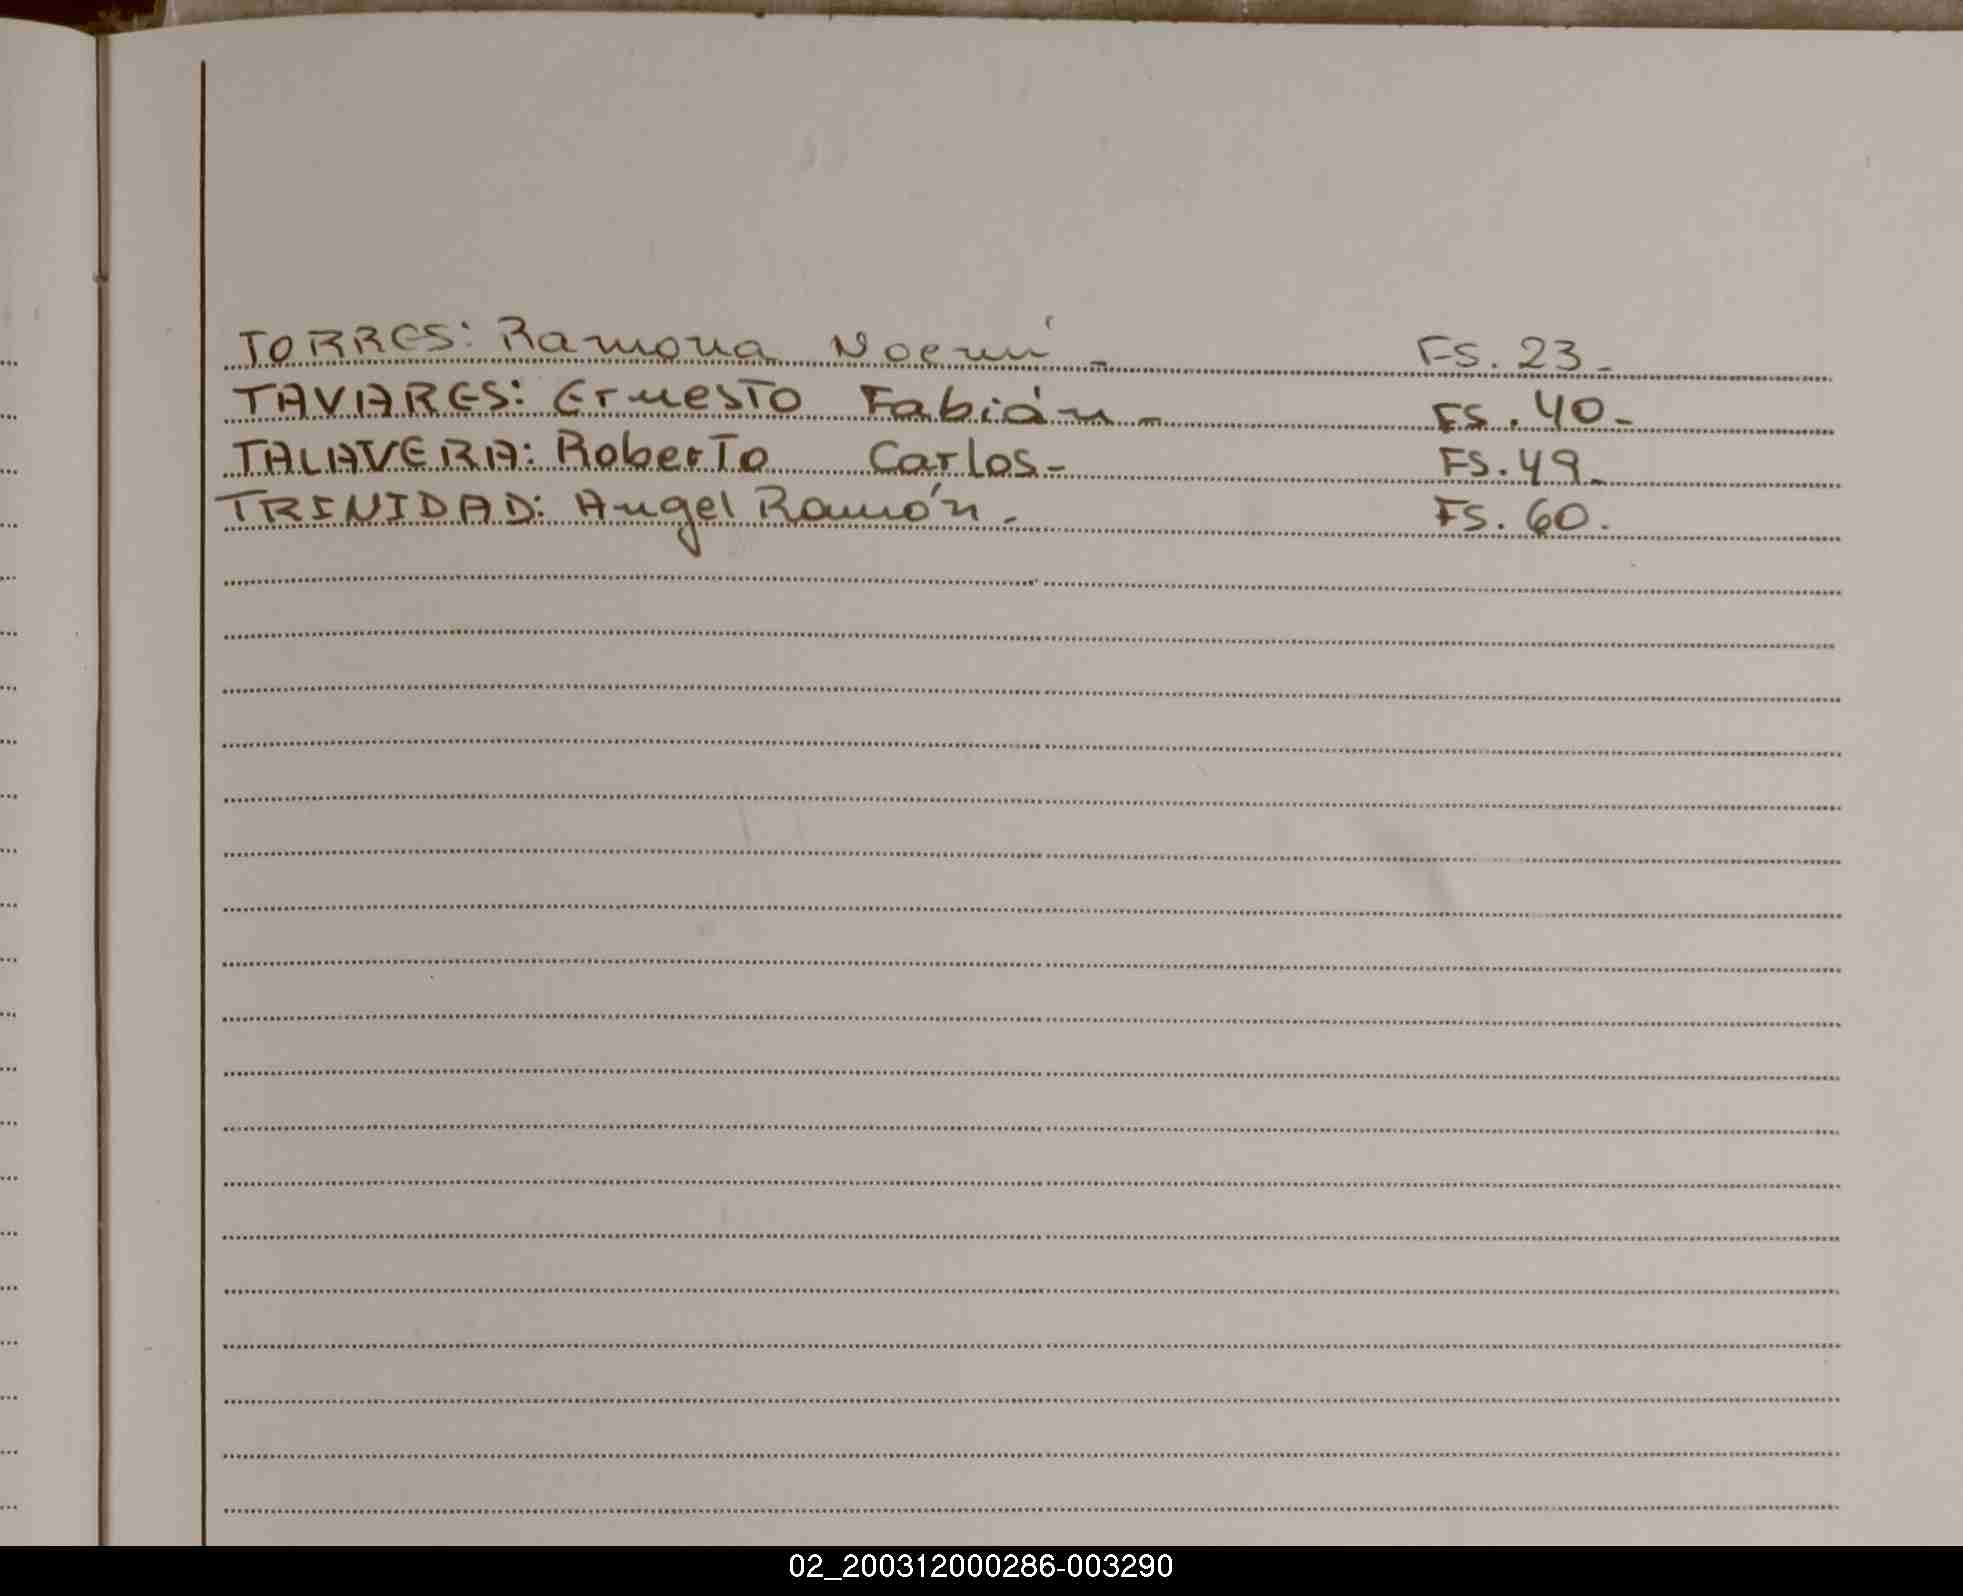 TORRES: Ramona Noemí - FS. 23 -
TAVARES: Ernesto Fabián - FS. 40 -
TALAVERA: Roberto Carlos - FS. 49 -
TRINIDAD: Angel Ramón - FS. 60.
02_200312000286-003290